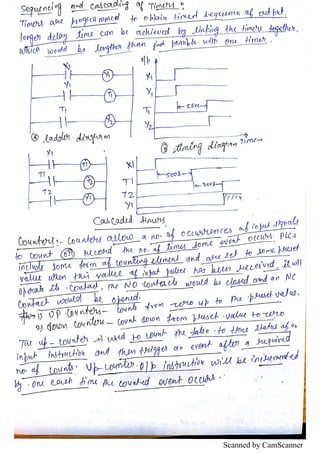 Sequencing and cascading of Timers :-
Timers are programmed to obtain timed sequence of output,
longer delay time can be achieved by linking the timers together,
which would be lengther than just possible with one timer.
X1
Y1
Y1
T1
T1
Y2
i/p
X1
Y1
T1
5sec
Y2
Time
(a) ladder diagram
(b) timing diagram
X1
T1
T1
T2
T2
Y1
X1
T1
500s
T2
Y1
Cascaded timers
Counters :- Counters allow a no. of occurrences of input signals
to count (or) record the no. of times some event occurs. PLCs
include some form of counting element and are set to some preset
value when this value of input pulses has been received, it will
operate its contact, the NO contacts would be closed and an NC
contact would be opened.
1) UP Counters - counts from zero up to the preset value.
2) down counters - count down from preset value to zero
The up-counter is used to count the false to true status of an
input instruction and then trigger an event after a required
no. of counts. Up-counter o/p instruction will be incremented
by one each time the counted event occurs.
Scanned by CamScanner